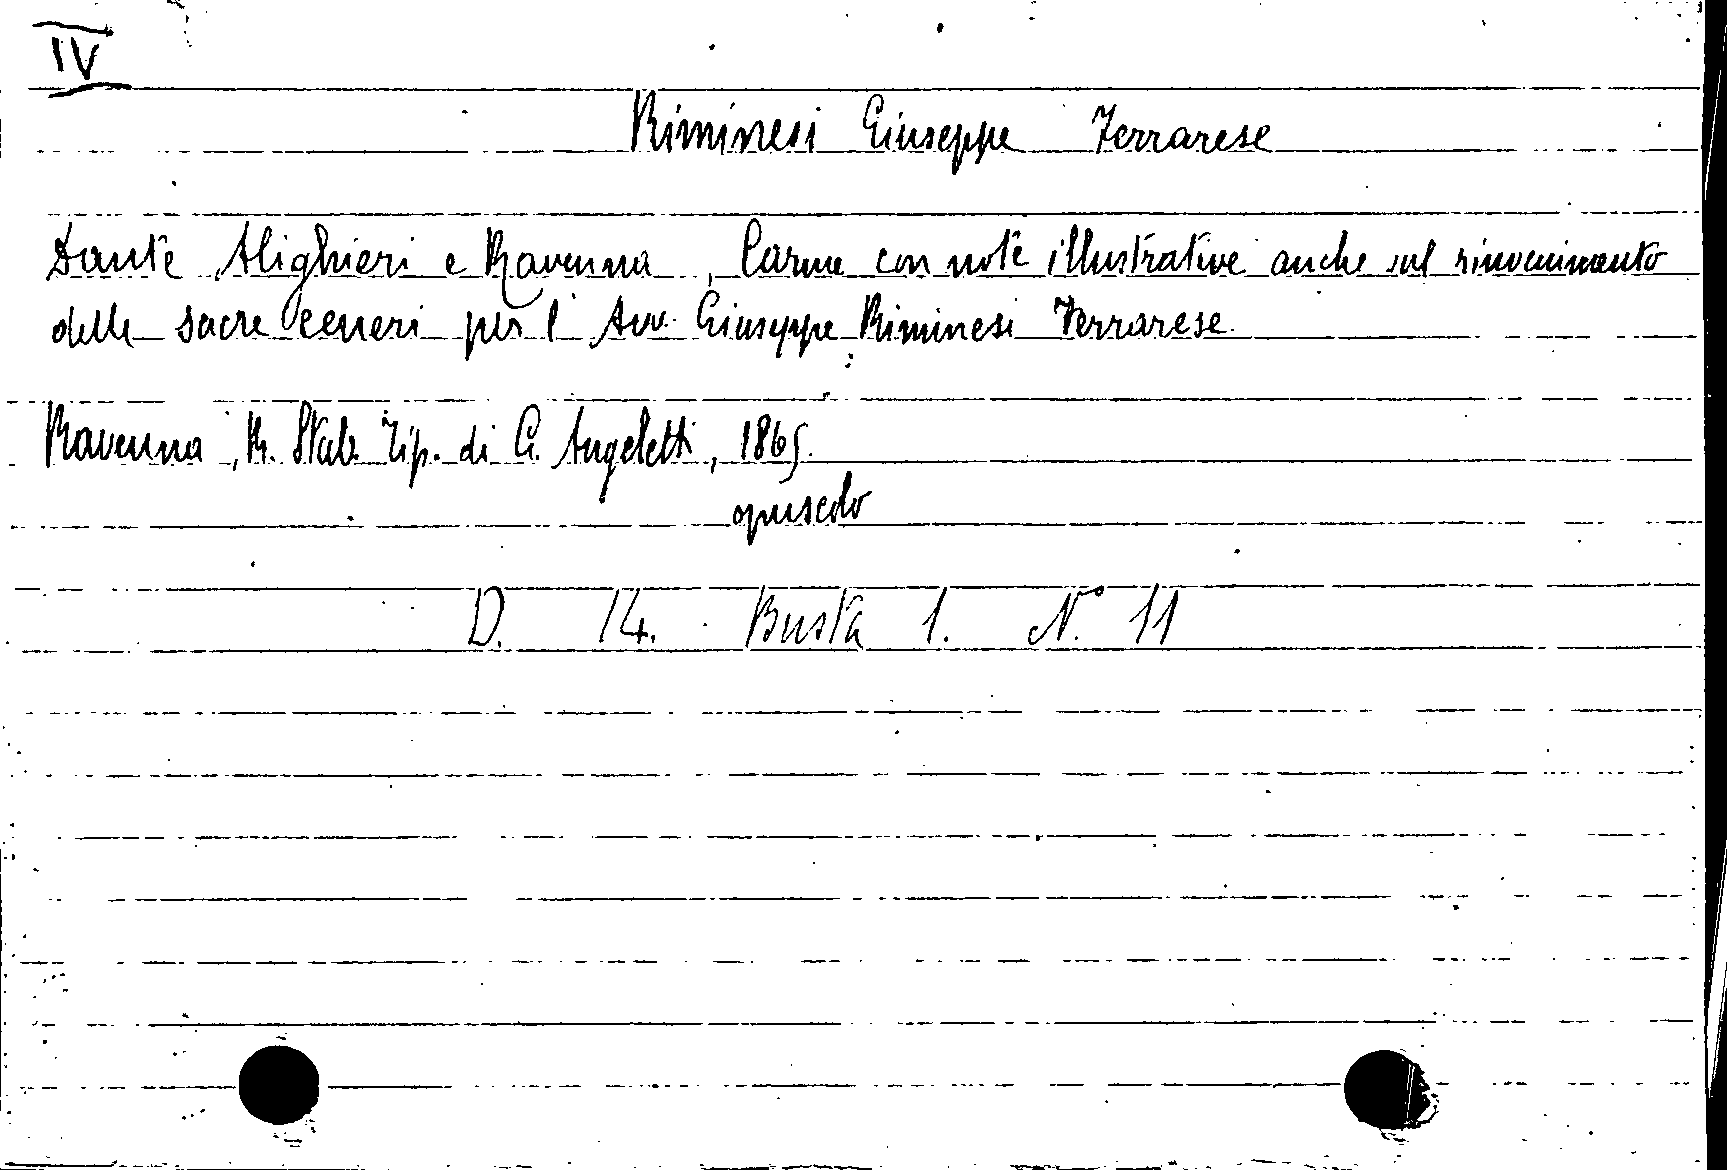 IV
Riminesi Giuseppe Ferrarese
Dante Alighieri e Ravenna, Carme con note illustrative anche sul rinvenimento
delle sacre ceneri per l'Avv. Giuseppe Riminesi Ferrarese
Ravenna, R. Stab. Tip. di G. Angeletti, 1865.
opuscolo
D. 14. Busta 1. N° 11